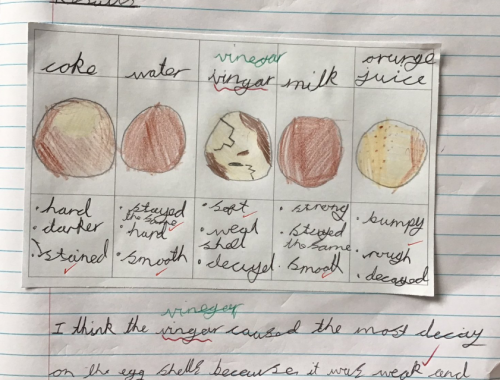 coke
water
vinegar
vingar
milk
orange
juice
• hard
• darker
• stained
• stayed
the same
• hard
• smooth
• soft
• weak
shell
• decayed
• strong
• stayed
the same
• smooth
• bumpy
• rough
• decayed
vinegar
I think the vingar caused the most decay
on the egg shells because it was weak and